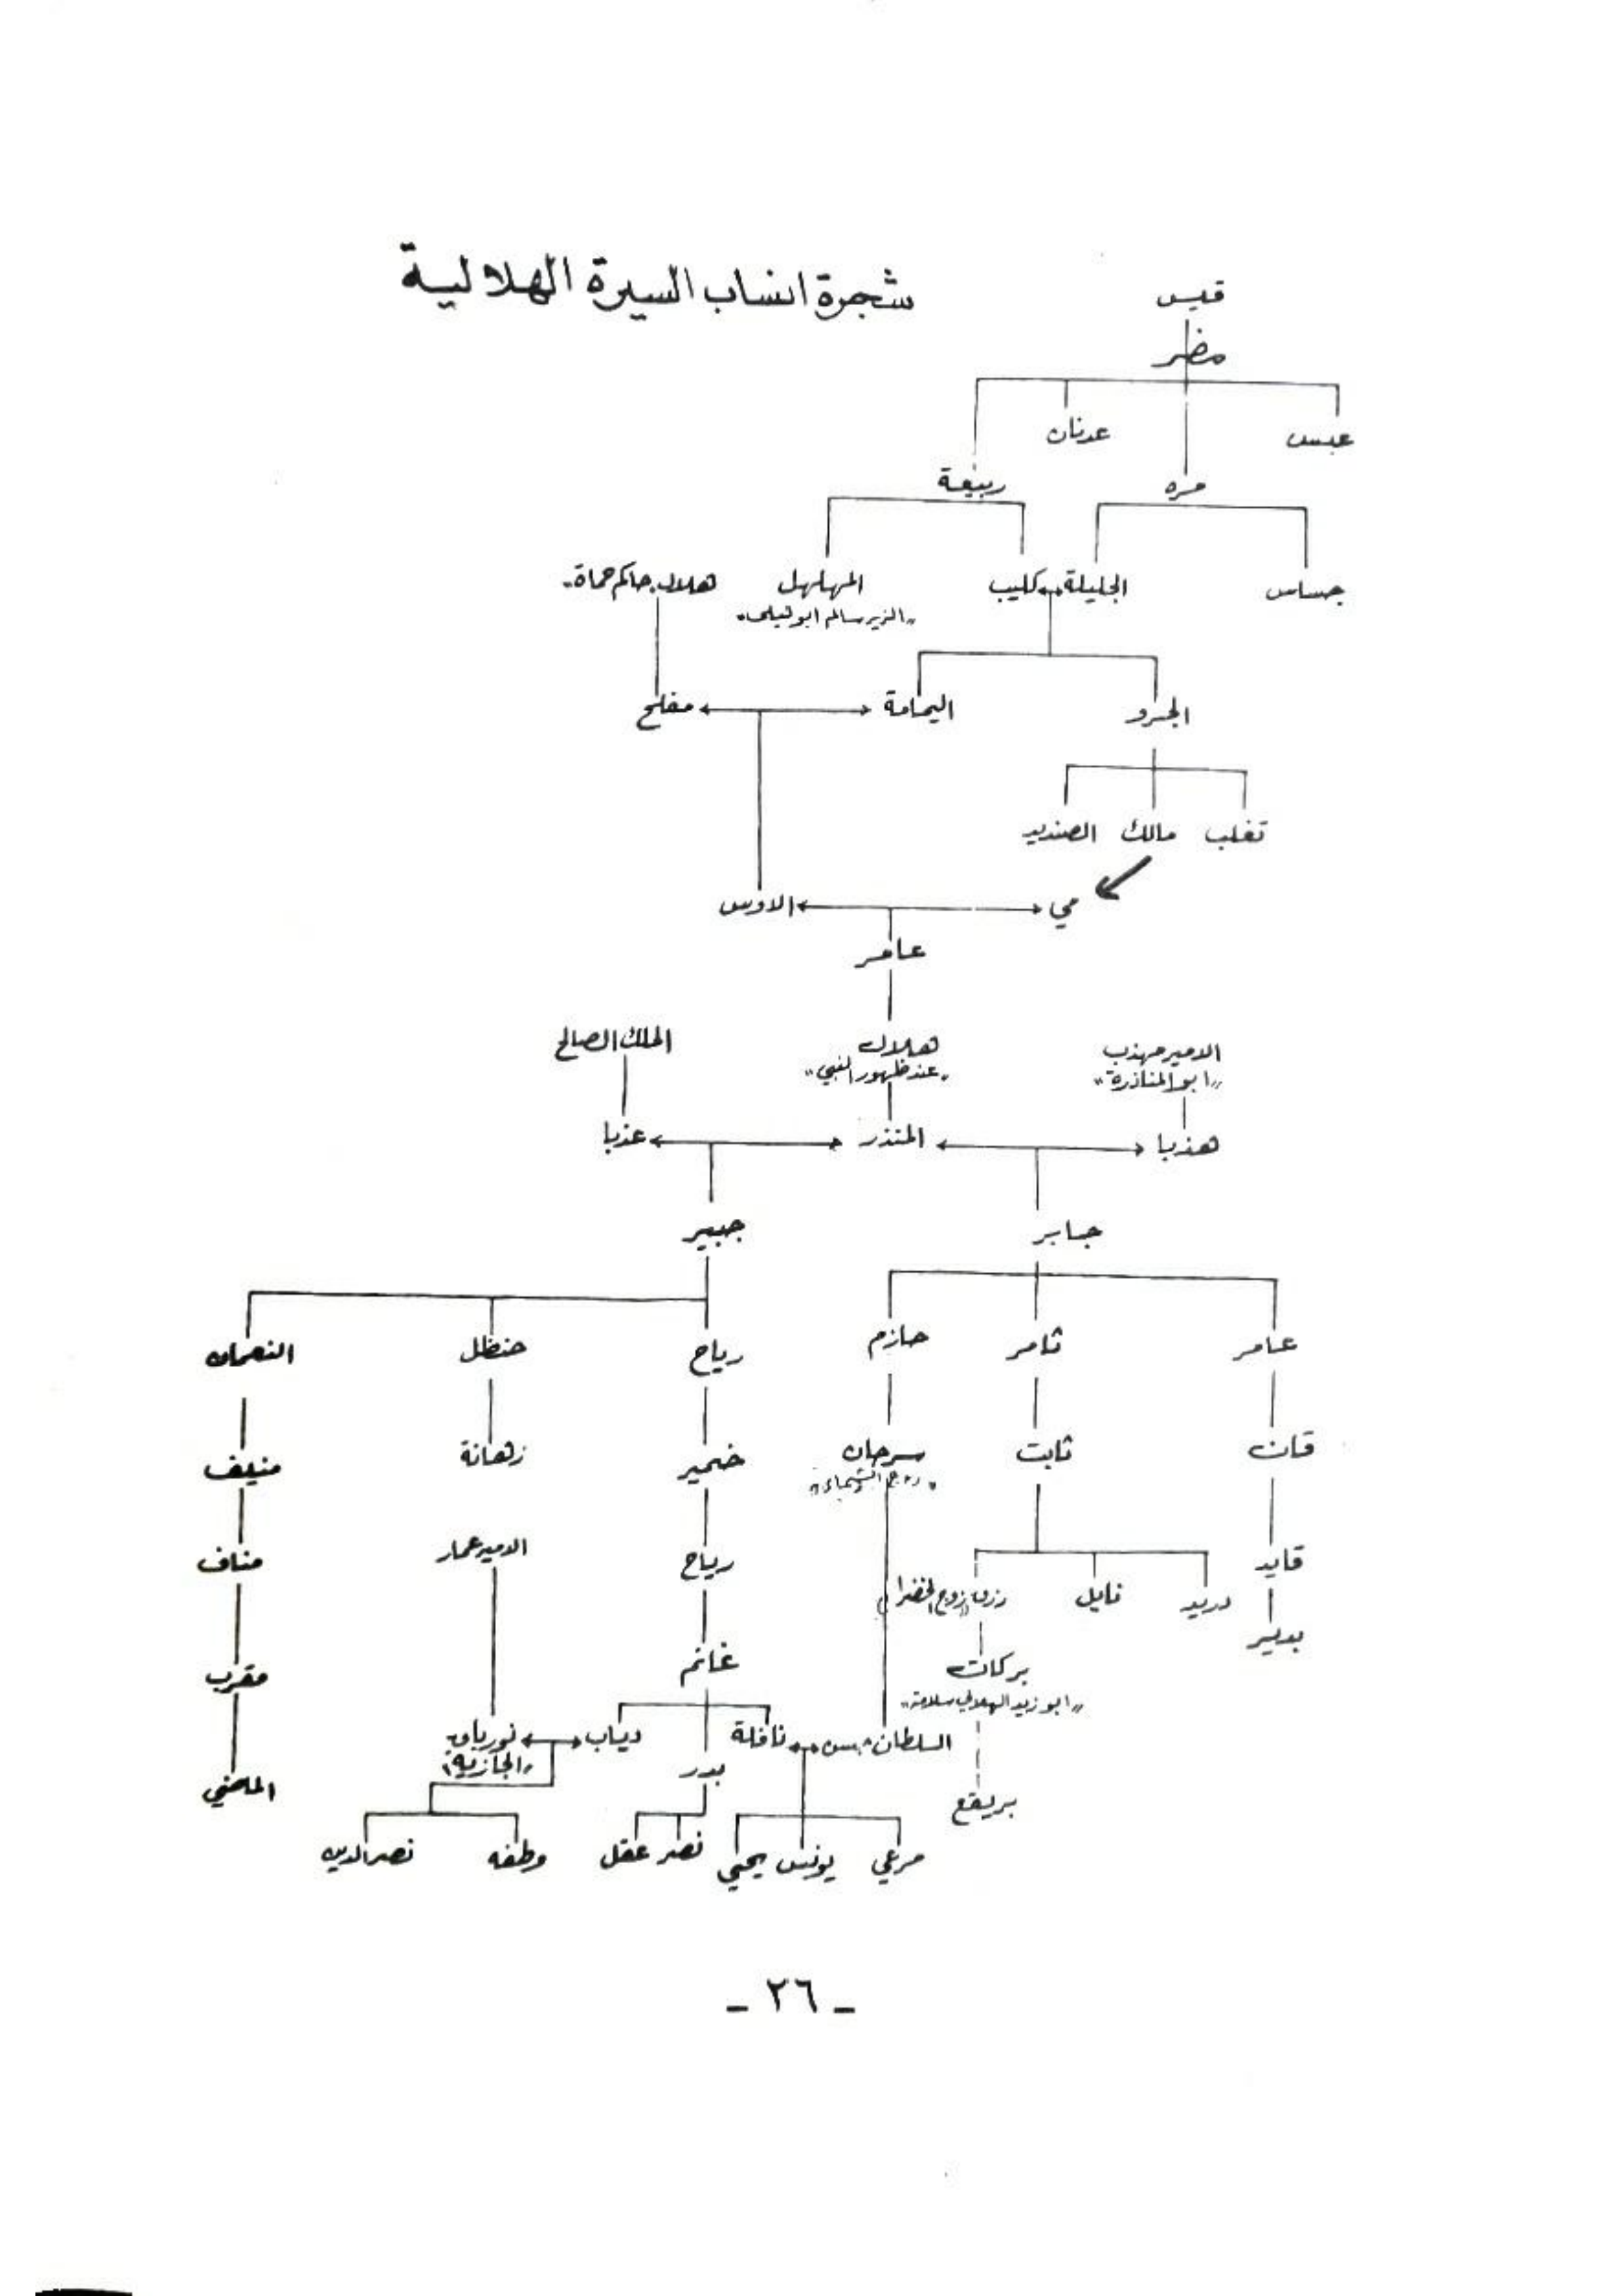 شجرة انساب السيرة الهلالية
قيس
مضر
عبس
عدنان
مره
ربيعة
جساس
الجليلة كليب
المهلهل
"الزير سالم ابو ليلى"
هلال "حاكم حماة"
الجرو
اليمامة
مفلح
تغلب
مالك
الصنديد
مي
الاوس
عامر
هلال
"عند ظهور النبي"
الامير مهذب
"ابو المناذرة"
الملك الصالح
هذبا
المنذر
عذبا
جابر
جبير
عامر
ثامر
حازم
رياح
حنظل
النعمان
قان
ثابت
سرحان
"زوج الشماء"
ضمير
زهانة
منيف
قايد
دريد
نايل
رزق (زوج الخضرا)
رياح
الامير عمار
مناف
بدير
بركات
"ابو زيد الهلالي سلامة"
غانم
مقرب
السلطان حسن
نافلة
بدر
دياب
نورباق
"الجازية"
الماضي
بريقع
مرعي
يونس
يحيي
نصر
عقل
وطفه
نصر الدين
- ٢٦ -